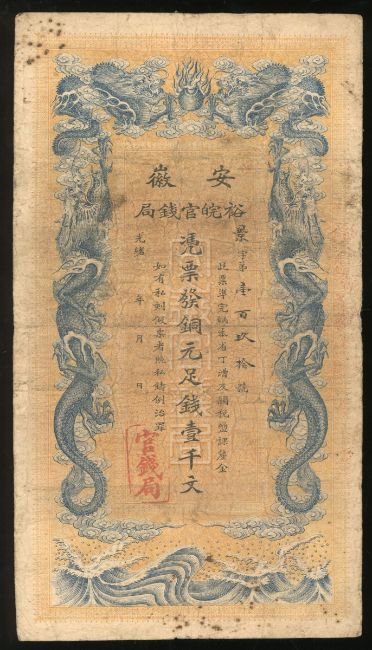 安徽
裕皖官錢局
景字第壹百玖拾號
此票準完納本省丁漕及關稅鹽課釐金
憑票發銅元足錢壹千文
如有私刻假票者照私鑄例治罪
光緒 年 月 日
官錢局